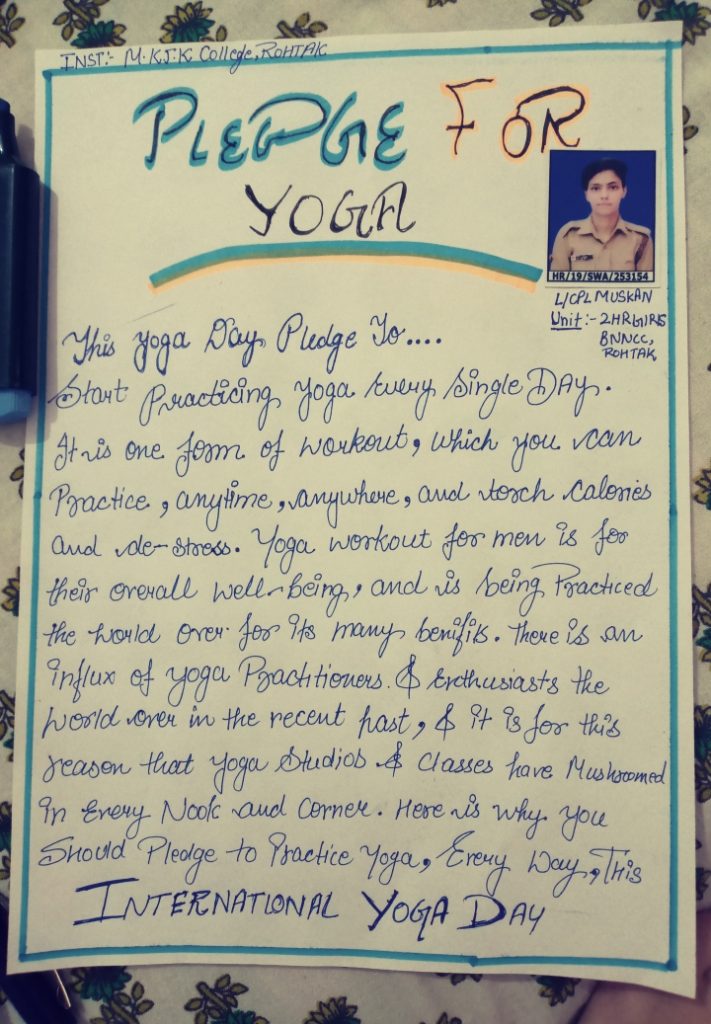 INST:- M.K.J.K College, ROHTAK
PLEDGE FOR
YOGA
HR/19/SWA/253154
L/CPL MUSKAN
Unit:- 2HRGIRLS
BNNCC,
ROHTAK
This yoga Day Pledge To....
Start Practicing Yoga Every Single Day.
It is one form of workout, which you can
Practice, anytime, anywhere, and torch calories
and de-stress. Yoga workout for men is for
their overall well-being, and is being Practiced
the world over for its many benifits. There is an
influx of yoga Practitioners & Enthusiasts the
world over in the recent past, & it is for this
reason that yoga Studios & Classes have Mushroomed
in Every Nook and corner. Here is why you
Should Pledge to Practice yoga, Every Day, This
INTERNATIONAL YOGA DAY